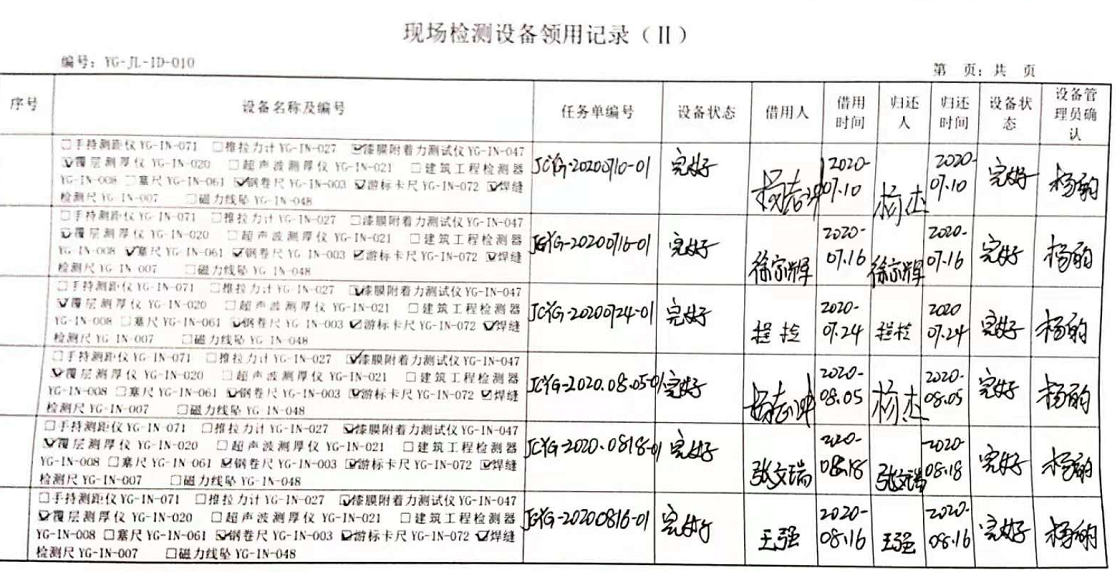 现场检测设备领用记录（II）
编号：YG-JL-ID-010
第 页：共 页
序号 设备名称及编号 任务单编号 设备状态 借用人 借用时间 归还人 归还时间 设备状态 设备管理员确认
☐手持测距仪 YG-IN-071 ☐推拉力计 YG-IN-027 ☑漆膜附着力测试仪 YG-IN-047
☑覆层测厚仪 YG-IN-020 ☐超声波测厚仪 YG-IN-021 ☐建筑工程检测器
YG-IN-008 ☐塞尺 YG-IN-061 ☑钢卷尺 YG-IN-003 ☑游标卡尺 YG-IN-072 ☑焊缝
检测尺 YG-IN-007 ☐磁力线坠 YG-IN-048
JCYG-20200710-01 完好 2020-07.10 杨杰 2020-07.10 完好 杨韵
☐手持测距仪 YG-IN-071 ☐推拉力计 YG-IN-027 ☐漆膜附着力测试仪 YG-IN-047
☑覆层测厚仪 YG-IN-020 ☐超声波测厚仪 YG-IN-021 ☐建筑工程检测器
YG-IN-008 ☑塞尺 YG-IN-061 ☑钢卷尺 YG-IN-003 ☑游标卡尺 YG-IN-072 ☑焊缝
检测尺 YG-IN-007 ☐磁力线坠 YG-IN-048
JCYG-20200716-01 完好 徐宗辉 2020-07.16 徐宗辉 2020-07.16 完好 杨韵
☐手持测距仪 YG-IN-071 ☐推拉力计 YG-IN-027 ☑漆膜附着力测试仪 YG-IN-047
☑覆层测厚仪 YG-IN-020 ☐超声波测厚仪 YG-IN-021 ☐建筑工程检测器
YG-IN-008 ☐塞尺 YG-IN-061 ☑钢卷尺 YG-IN-003 ☑游标卡尺 YG-IN-072 ☑焊缝
检测尺 YG-IN-007 ☐磁力线坠 YG-IN-048
JCYG-20200724-01 完好 2020-07.24 2020 07.24 完好 杨韵
☐手持测距仪 YG-IN-071 ☐推拉力计 YG-IN-027 ☑漆膜附着力测试仪 YG-IN-047
☑覆层测厚仪 YG-IN-020 ☐超声波测厚仪 YG-IN-021 ☐建筑工程检测器
YG-IN-008 ☐塞尺 YG-IN-061 ☑钢卷尺 YG-IN-003 ☑游标卡尺 YG-IN-072 ☑焊缝
检测尺 YG-IN-007 ☐磁力线坠 YG-IN-048
JCYG-2020.08.05-01 完好 2020-08.05 杨杰 2020-08.05 完好 杨韵
☐手持测距仪 YG-IN-071 ☐推拉力计 YG-IN-027 ☑漆膜附着力测试仪 YG-IN-047
☑覆层测厚仪 YG-IN-020 ☐超声波测厚仪 YG-IN-021 ☐建筑工程检测器
YG-IN-008 ☐塞尺 YG-IN-061 ☑钢卷尺 YG-IN-003 ☑游标卡尺 YG-IN-072 ☑焊缝
检测尺 YG-IN-007 ☐磁力线坠 YG-IN-048
JCYG-2020.0818-01 完好 张文瑞 2020-08.18 张文瑞 2020-08.18 完好 杨韵
☐手持测距仪 YG-IN-071 ☐推拉力计 YG-IN-027 ☑漆膜附着力测试仪 YG-IN-047
☑覆层测厚仪 YG-IN-020 ☐超声波测厚仪 YG-IN-021 ☐建筑工程检测器
YG-IN-008 ☐塞尺 YG-IN-061 ☑钢卷尺 YG-IN-003 ☑游标卡尺 YG-IN-072 ☑焊缝
检测尺 YG-IN-007 ☐磁力线坠 YG-IN-048
JCYG-20200816-01 完好 王强 2020-08.16 王强 2020-08.16 完好 杨韵